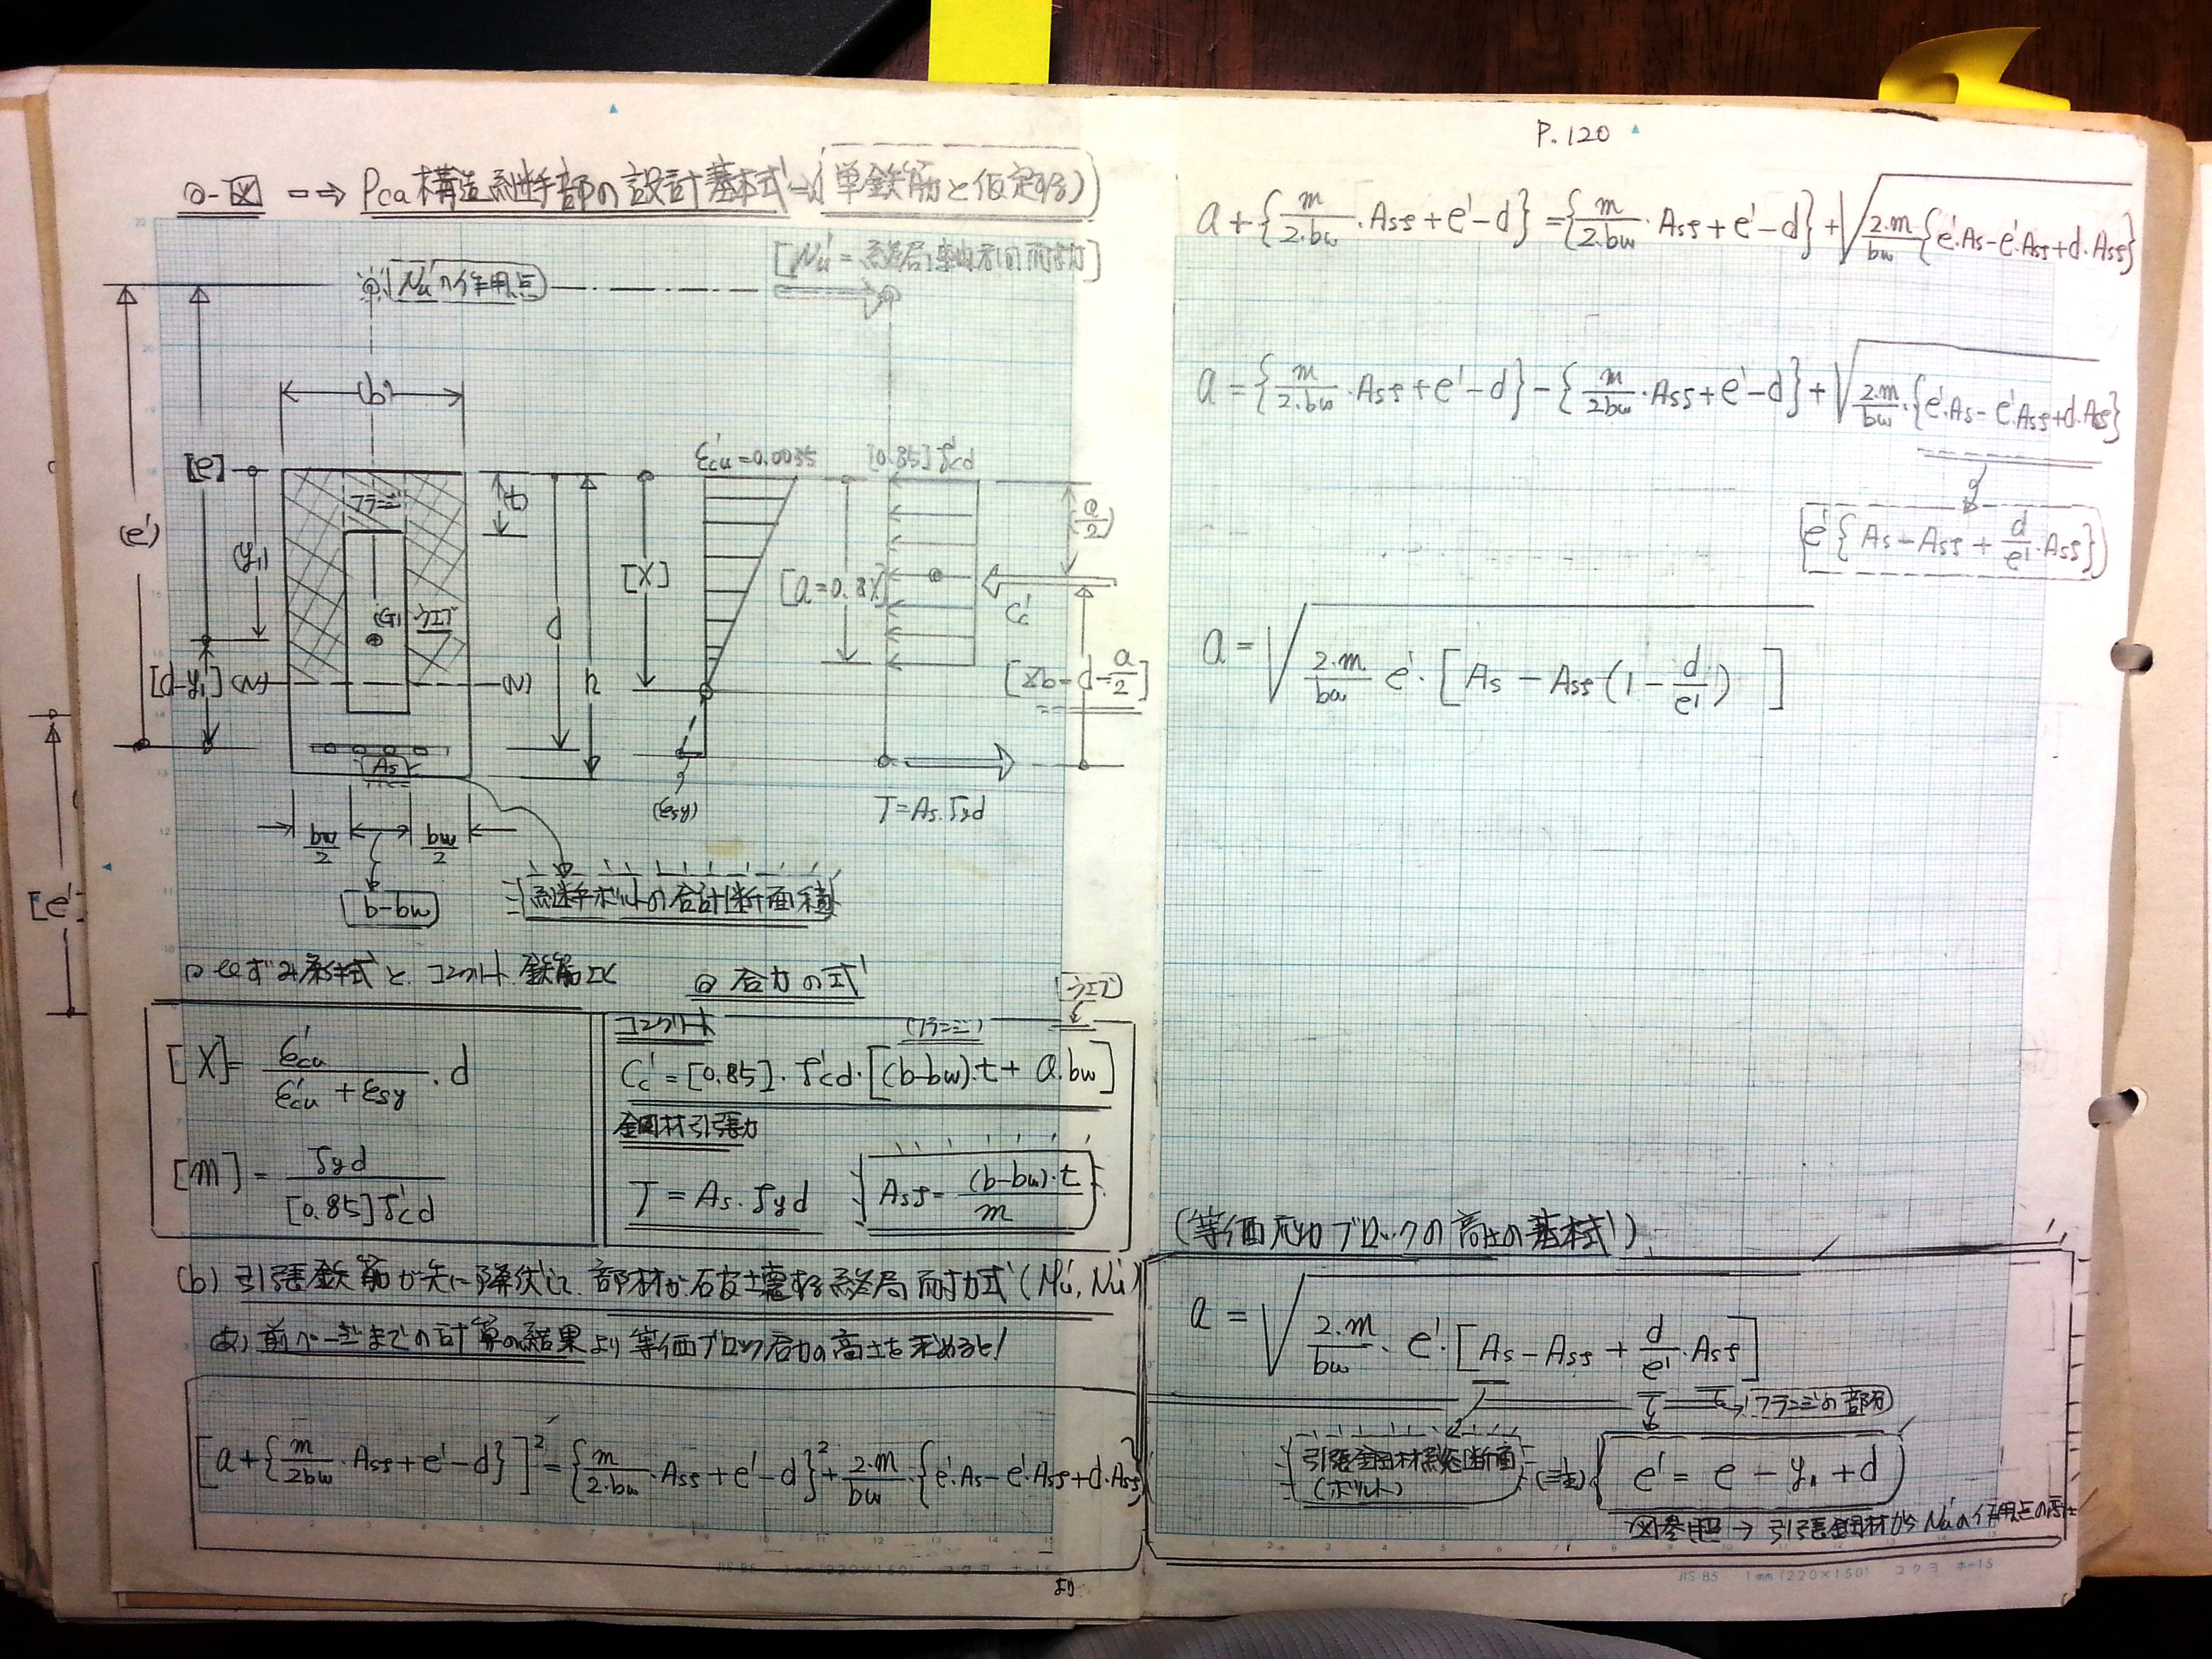 ◎-図 ⇒ Pca構造継断手部の設計基本式→(単鉄筋と仮定する)
[Nu'=終局軸方向耐力]
Nu'の作用点
(b)
[e]
(e')
(y₁)
[d-y₁]
(N)
(N)
フランジ
ウエブ
(G)
(t)
d
h
[X]
As
ε'cu=0.0035
(εsy)
[0.85]f'cd
[a=0.8X]
(a/2)
C'c
[Zb=d-a/2]
T=As.fyd
bw/2
bw/2
[b-bw]
継手ボルトの合計断面積
[e']
◎ひずみ条件式とコンクリート.鉄筋比
◎合力の式
[X]= ε'cu/(ε'cu+εsy) .d
[m]= fyd/([0.85]f'cd)
コンクリート
(フランジ)
(ウエブ)
C'c=[0.85].f'cd.[(b-bw).t+a.bw]
鋼材引張力
T=As.fyd
Asf= (b-bw).t/m
(b) 引張鉄筋が先に降伏して.部材が破壊する終局耐力式(Mu',Nu')
(あ) 前ページまでの計算の結果より等価ブロック応力の高さを求めると!
[a+{m/2bw .Asf+e'-d}]²={m/2.bw .Asf+e'-d}²+2.m/bw .{e'.As-e'.Asf+d.Asf}
より
P.120
a+{m/2.bw .Asf+e'-d}={m/2.bw .Asf+e'-d}+√(2.m/bw {e'.As-e'.Asf+d.Asf})
a={m/2.bw .Asf+e'-d}-{m/2bw .Asf+e'-d}+√(2.m/bw .{e'.As-e'.Asf+d.Asf})
e'{As-Asf+d/e' .Asf}
a=√(2.m/bw e'.[As-Asf(1-d/e')])
(等価応力ブロックの高さの基本式)
a=√(2.m/bw .e'.[As-Asf+d/e' .Asf])
フランジの部分
引張鋼材総断面
(ボルト)
(注) e'=e-y₁+d
図参照→引張鋼材からNu'の作用点の高さ
JIS B5 1mm (220×150) コクヨ ホ-15
JIS B5 1mm (220×150) コクヨ ホ-15